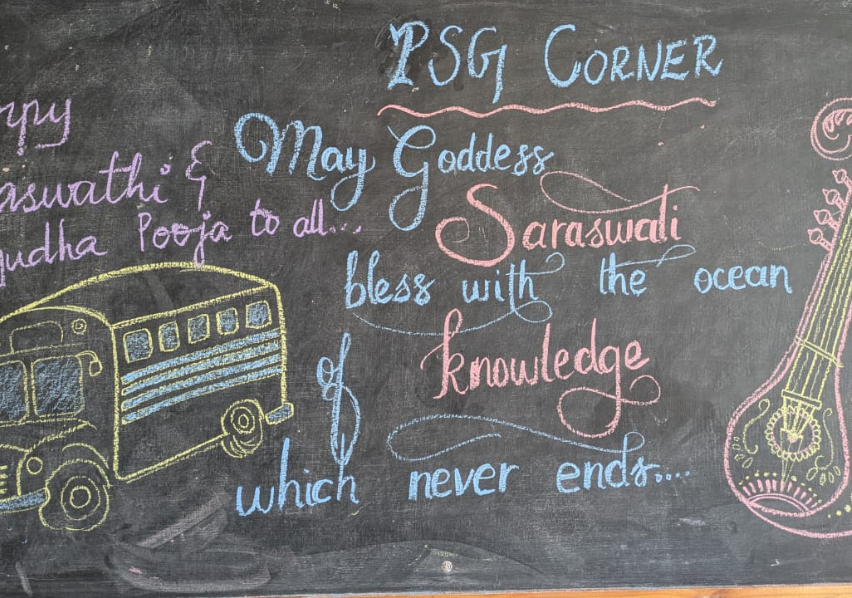 PSG CORNER
ppy
aswathi &
yudha Pooja to all...
May Goddess
Saraswati
bless with the ocean
of knowledge
which never ends....